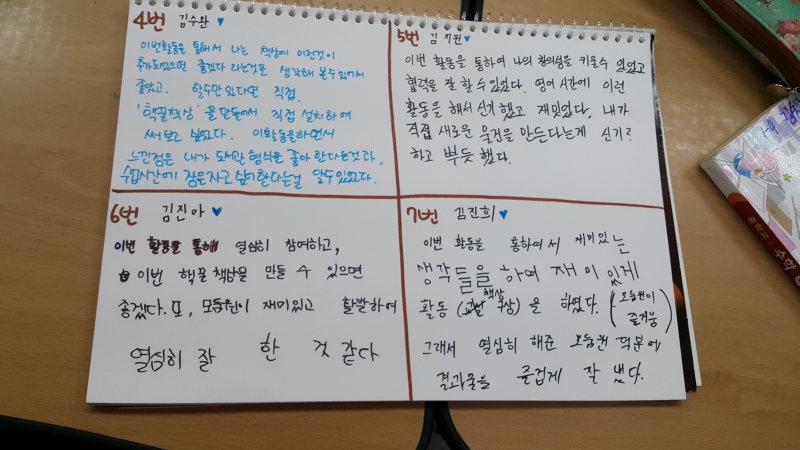 4번 김수완
이번활동을 통해서 나는 책상에 이런것이
추가되었으면 좋겠다 라는것을 생각해 볼수있어서
좋았고. 할수만 있다면 직접.
'핵꿀책상'을 만들어서 직접 설치하여
써보고 싶었다. 이활동을하면서
느낀점은 내가 도서관 형식을 좋아한다는것과,
수업시간에 잠을자고 싶어한다는걸 알수있었다.
5번 김지원
이번 활동을 통하여 나의 창의성을 키울수 있었고
협력을 잘 할수있었다. 영어시간에 이런
활동을 해서 신기했고 재밌었다. 내가
직접 새로운 물건을 만든다는게 신기?
하고 뿌듯했다.
6번 김진아
이번 활동을 통해 열심히 참여하고,
이번 핵꿀책상을 만들 수 있으면
좋겠다. 또, 모둠원이 재미있고 활발하여
열심히 잘 한 것 같다
7번 김진희
이번 활동을 통하여서 재미있는
생각들을 하여 재미있게
책상
활동 (교실 구상)을 하였다. (모둠원이
즐거움)
그래서 열심히 해준 모둠원 덕분에
결과물을 즐겁게 잘 냈다.
수학